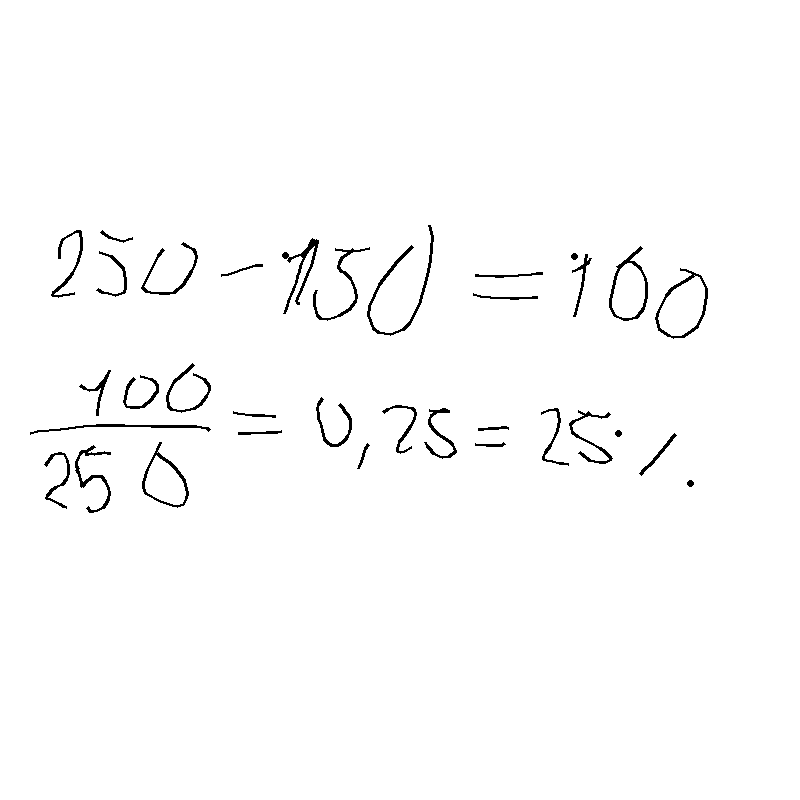 250 - 150 = 100
100/250 = 0,25 = 25%